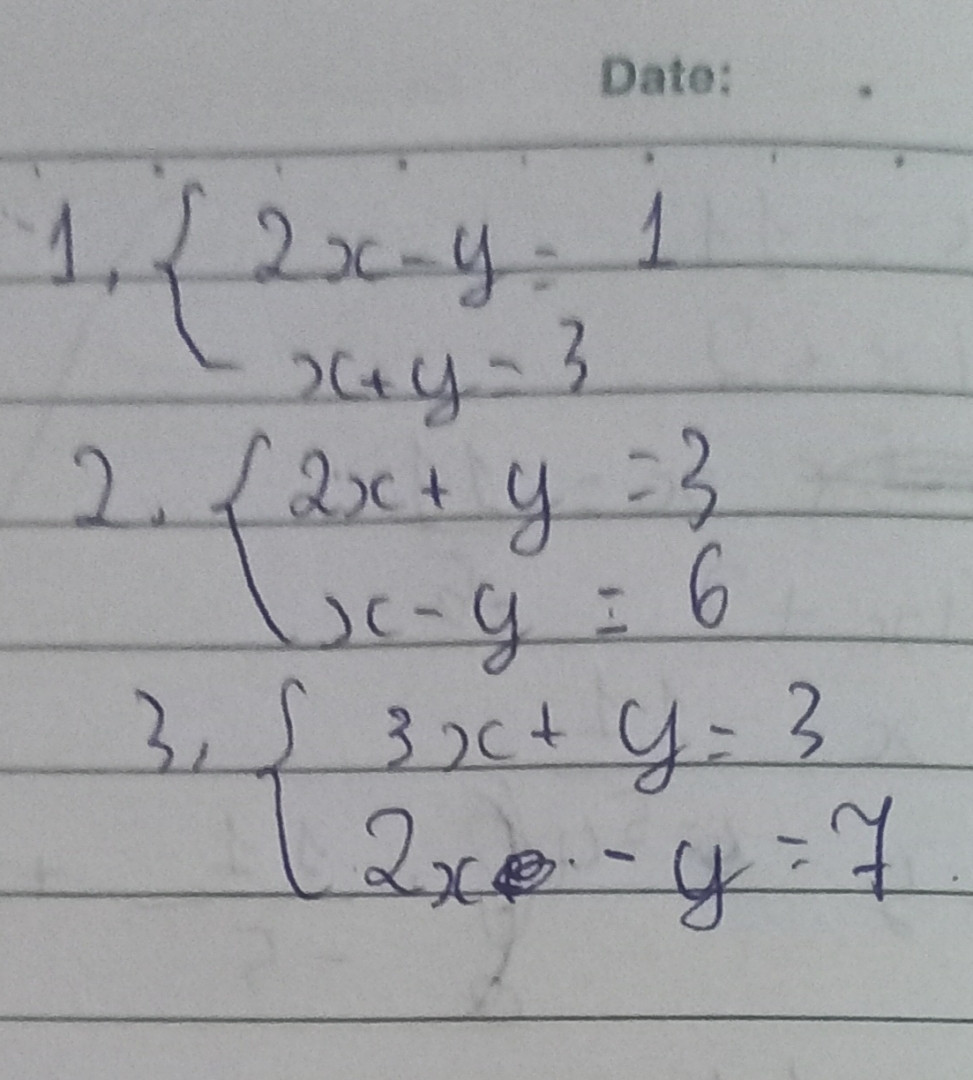 Date: .
1, { 2x - y = 1
x + y = 3
2. { 2x + y = 3
x - y = 6
3, { 3x + y = 3
2x - y = 7